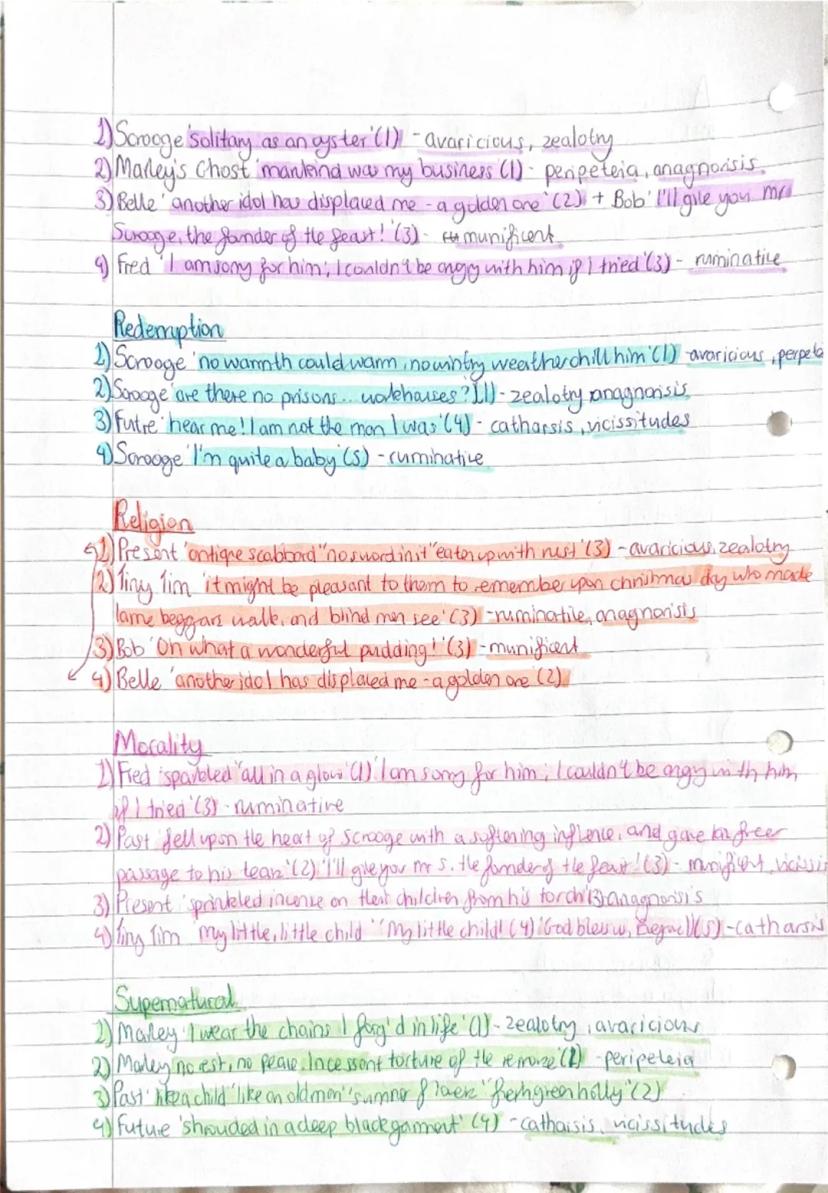 1) Scrooge 'solitary as an oyster' (1) - avaricious, zealotry
2) Marley's Ghost 'mankind was my business' (1) - peripeteia, anagnorisis
3) Belle 'another idol has displaced me - a golden one' (2) + Bob 'I'll give you Mr
Scrooge, the founder of the feast!' (3) - munificent
4) Fred 'I am sorry for him; I couldn't be angry with him if I tried' (3) - ruminative
Redemption
1) Scrooge 'no warmth could warm, no wintry weather chill him' (1) - avaricious, perpete
2) Scrooge 'are there no prisons... workhouses?' (1) - zealotry, anagnorisis
3) Future 'hear me! I am not the man I was' (4) - catharsis, vicissitudes
4) Scrooge 'I'm quite a baby' (5) - ruminative
Religion
1) Present 'antique scabbard' 'no sword in it' 'eaten up with rust' (3) - avaricious, zealotry
2) Tiny Tim 'it might be pleasant to them to remember upon christmas day who made
lame beggars walk, and blind men see' (3) - ruminative, anagnorisis
3) Bob 'Oh what a wonderful pudding!' (3) - munificent
4) Belle 'another idol has displaced me - a golden one' (2)
Morality
1) Fred 'sparkled' 'all in a glow' (1) 'I am sorry for him; I couldn't be angry with him
if I tried' (3) - ruminative
2) Past 'fell upon the heart of scrooge with a softening influence, and gave his freer
passage to his tears' (2) 'I'll give you mr S. the founder of the feast' (3) - munificent, vicissit
3) Present 'sprinkled incense on their children from his torch' (3) anagnorisis
4) Tiny Tim 'My little, little child' 'My little child! (4) 'God bless us, (5) - catharsis
Supernatural
1) Marley 'I wear the chains I forg'd in life' (1) - zealotry, avaricious
2) Marley no rest, no peace. Incessant torture of the remorse' (1) - peripeteia
3) Past 'like a child' 'like an old man' 'summer flowers' 'fresh green holly' (2)
4) Future 'shrouded in a deep black garment' (4) - catharsis, vicissitudes